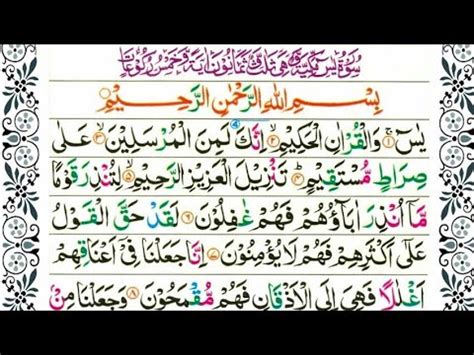 سُوْرَةُ يٰسٓ مَكِّيَّةٌ وَّهِيَ ثَلٰثٌ وَّثَمَانُوْنَ اٰيَةً وَّخَمْسُ رُكُوْعَاتٍ
بِسْمِ اللّٰهِ الرَّحْمٰنِ الرَّحِيْمِ
يٰسٓ ۝١ وَالْقُرْاٰنِ الْحَكِيْمِ ۝٢ اِنَّكَ لَمِنَ الْمُرْسَلِيْنَ ۝٣ عَلٰى
صِرَاطٍ مُّسْتَقِيْمٍ ۝٤ تَنْزِيْلَ الْعَزِيْزِ الرَّحِيْمِ ۝٥ لِتُنْذِرَ قَوْمًا
مَّآ اُنْذِرَ اٰبَآؤُهُمْ فَهُمْ غٰفِلُوْنَ ۝٦ لَقَدْ حَقَّ الْقَوْلُ
عَلٰٓى اَكْثَرِهِمْ فَهُمْ لَا يُؤْمِنُوْنَ ۝٧ اِنَّا جَعَلْنَا فِيْٓ اَعْنَاقِهِمْ
اَغْلٰلًا فَهِيَ اِلَى الْاَذْقَانِ فَهُمْ مُّقْمَحُوْنَ ۝٨ وَجَعَلْنَا مِنْۢ